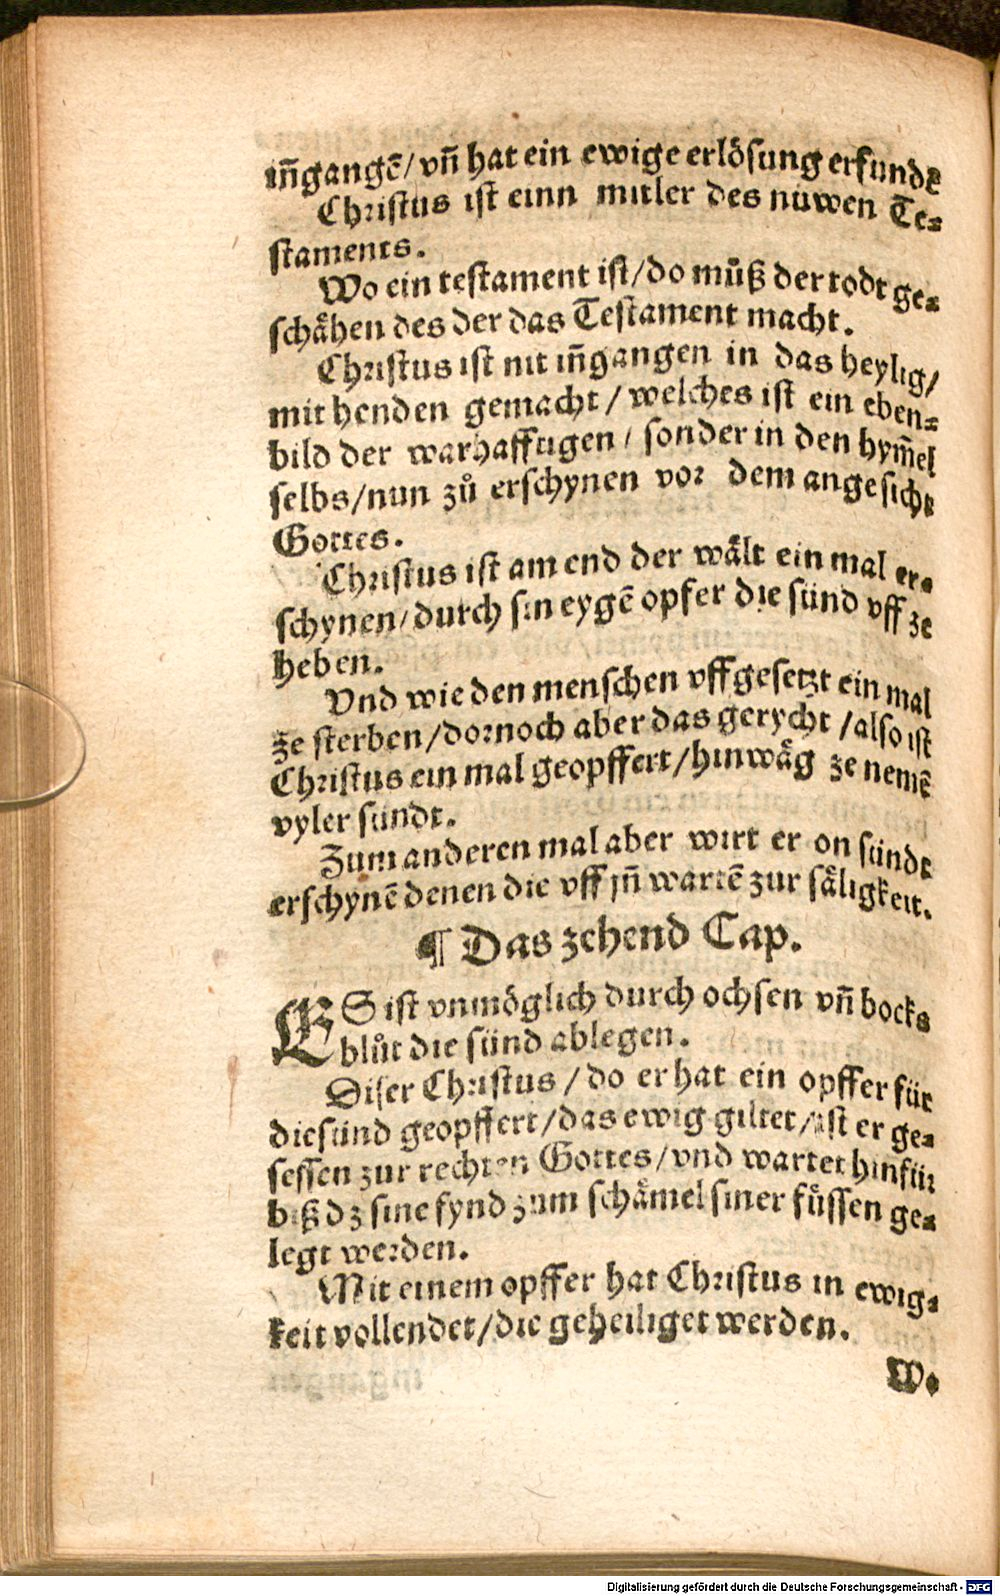 iñgangē/ vñ hat ein ewige erlösung erfundē
Christus ist einn mitler des nüwen Te⸗
staments.
Wo ein testament ist/do můß der todt ge⸗
schähen des der das Testament macht.
Christus ist nit iñgangen in das heylig/
mit henden gemacht/ welches ist ein eben⸗
bild der warhafftigen/ sonder in den hym̄el
selbs/nun zů erschynen vor dem angesicht
Gottes.
Christus ist am end der wält ein mal er⸗
schynen/durch sin eygē opfer die sünd vff ze
heben.
Vnd wie den menschen vffgesetzt ein mal
ze sterben/dornoch aber das gerycht /also ist
Christus ein mal geopffert/hinwäg ze nemē
vyler sündt.
Zum anderen mal aber wirt er on sündt
erschynē denen die vff jñ wartē zur säligkeit.
¶ Das zehend Cap.
ES ist vnmöglich durch ochsen vñ bocks
blůt die sünd ablegen.
Diser Christus / do er hat ein opffer für
die sünd geopffert/das ewig giltet/ist er ge⸗
sessen zur rechten Gottes/vnd wartet hinfür
biß dz sine fynd zum schämel siner füssen ge⸗
legt werden.
Mit einem opffer hat Christus in ewig⸗
keit vollendet/die geheiliget werden.
Wo
Digitalisierung gefördert durch die Deutsche Forschungsgemeinschaft - DFG